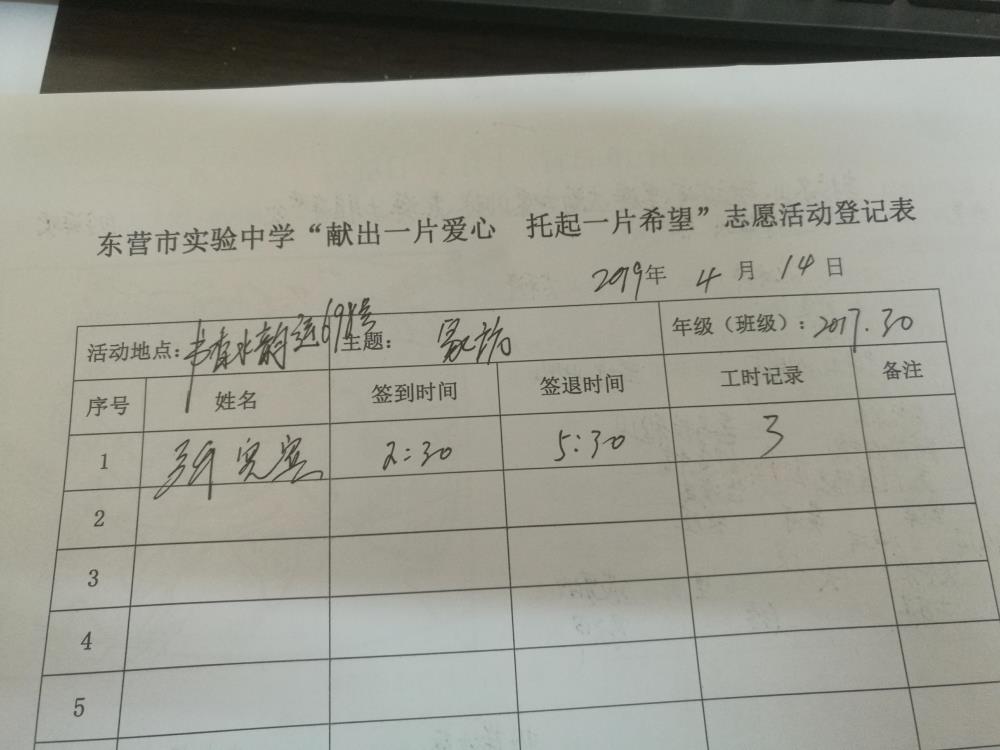 东营市实验中学“献出一片爱心 托起一片希望”志愿活动登记表
2019年 4 月 14 日
活动地点: 水韵 698号 主题: 家访 年级（班级）: 2017.30
序号 姓名 签到时间 签退时间 工时记录 备注
1 2:30 5:30 3
2
3
4
5